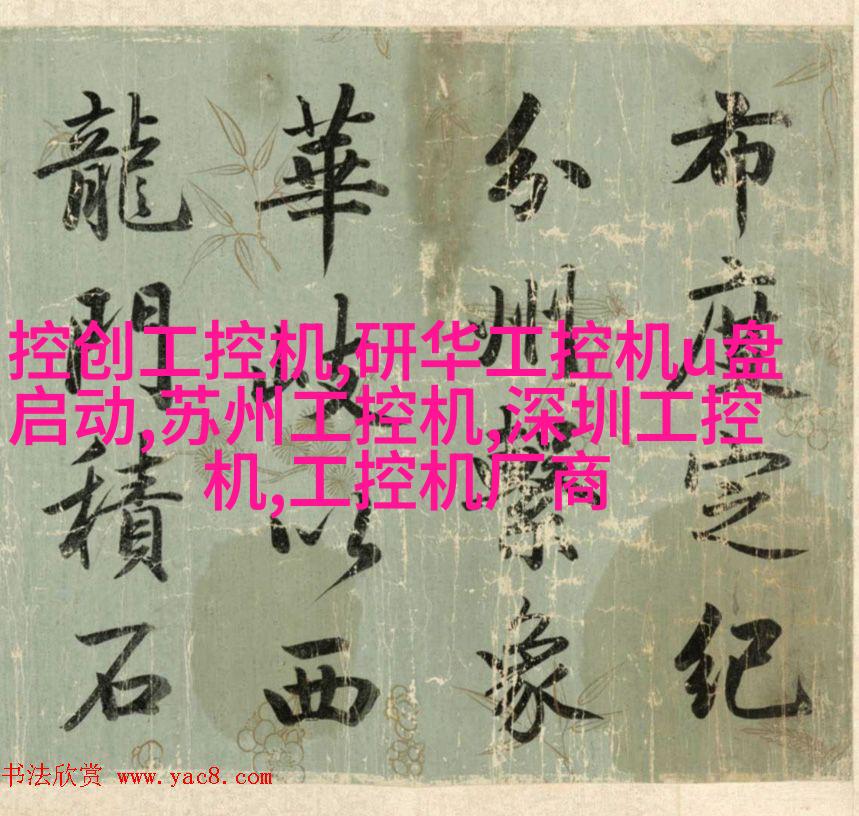 布度定紀
分州繫象
華岐以西
龍門積石
控创工控机,研华工控机u盘
启动,苏州工控机,深圳工控
机,工控机厂商
书法欣赏 www.yac8.com